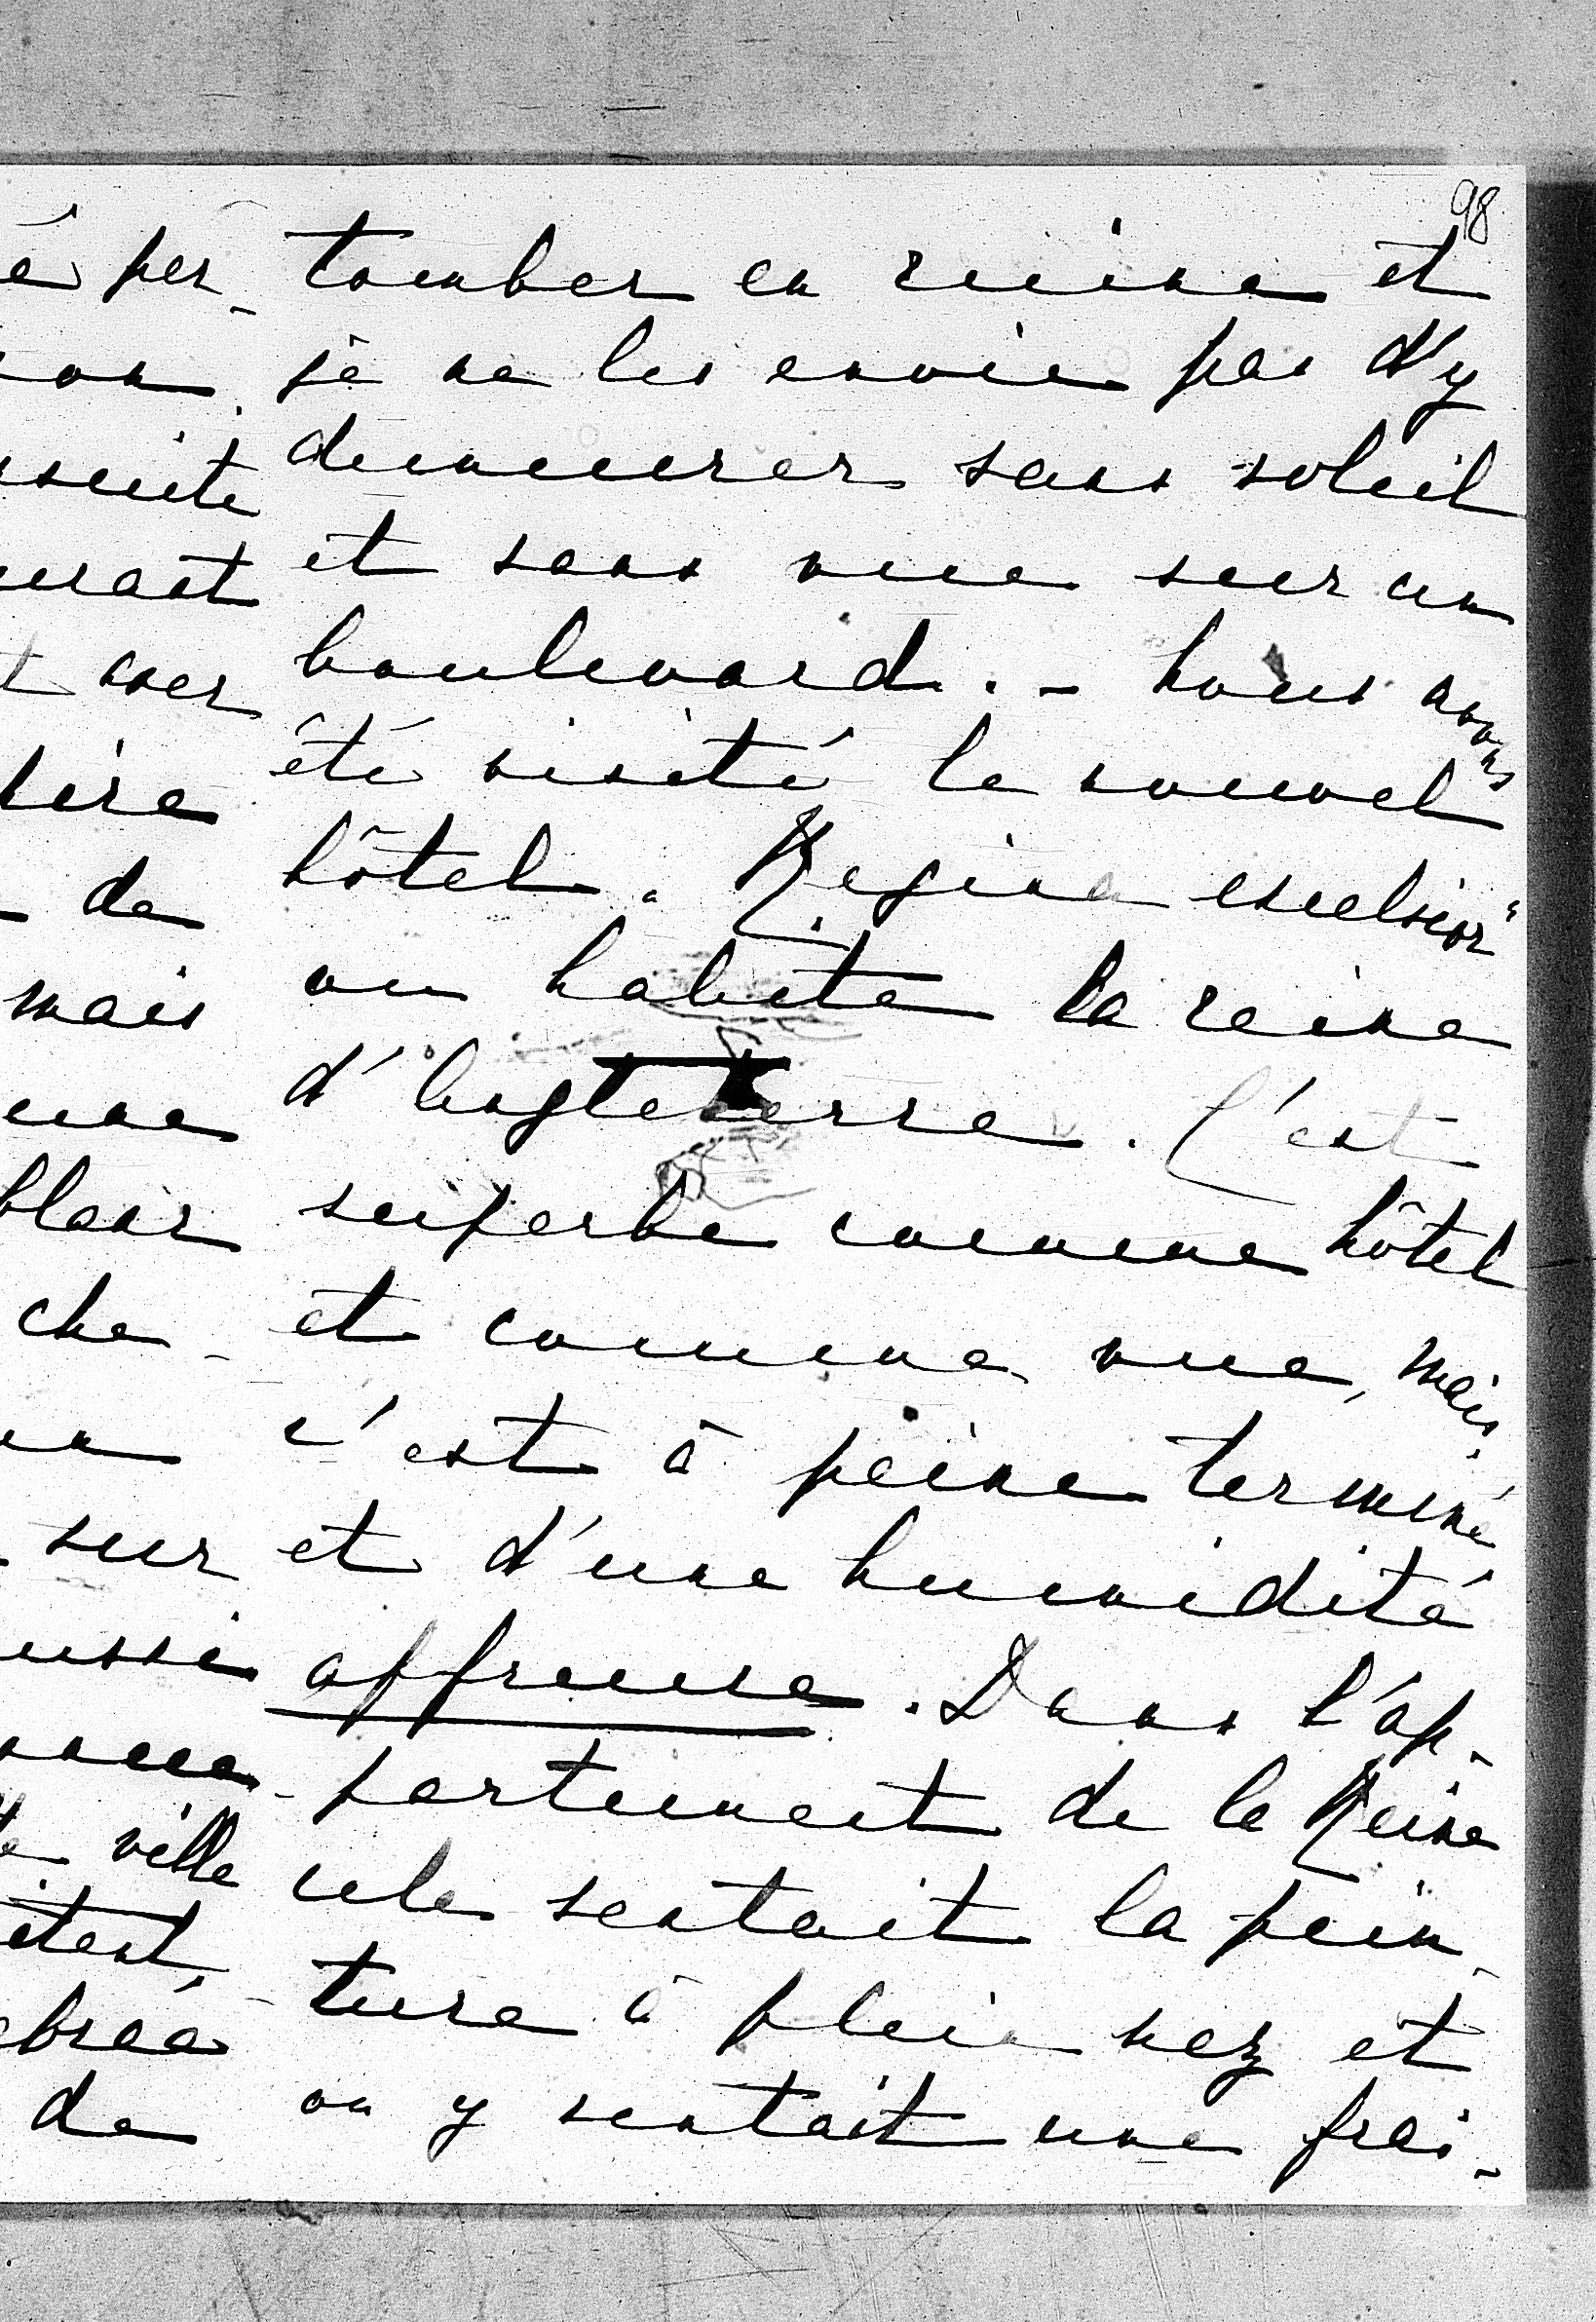 98
tomber en ruine et
je ne les envie pas d'y
demeurer sans soleil
et sans vue sur un
boulevard. - Nous avons
été visité le nouvel
hôtel "Regina excelsior"
ou habite la reine
d'Angleterre. C'est
superbe comme hôtel
et comme vue, mais
c'est à peine terminé
et d'une humidité
affreuse. Dans l'ap-
partement de la Reine
cela sentait la pein-
ture à plein nez et
on y sentait une frai-
é per-
suite
dire
- de
mais
une
che-
sur
ville
de